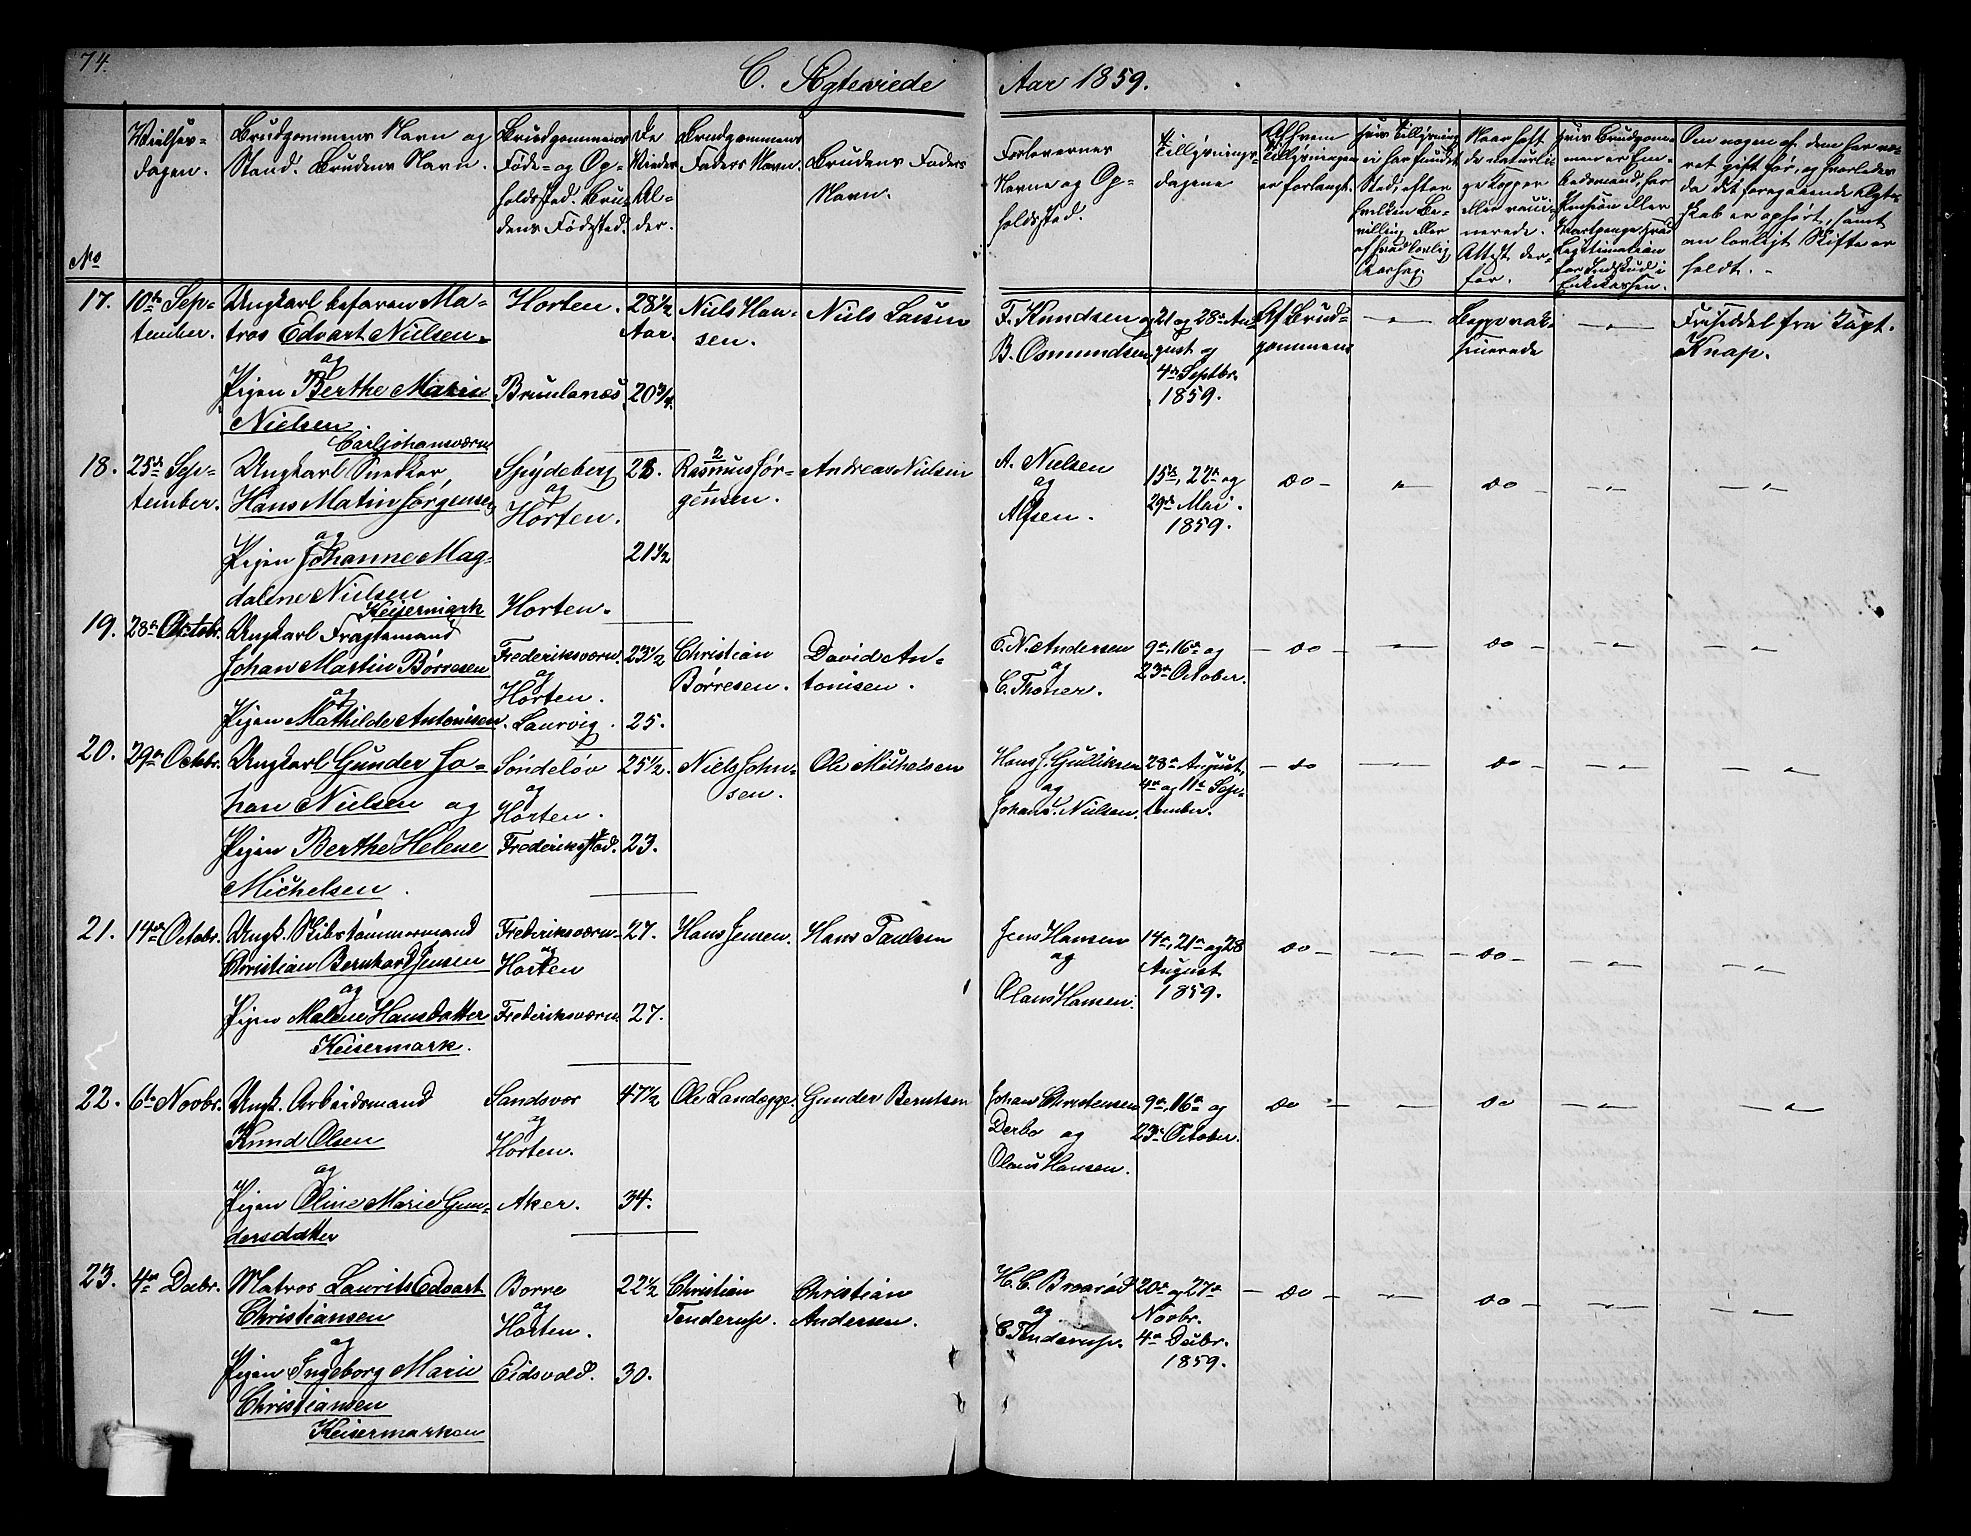 74.
C. Ægteviede
Aar 1859.
No
Vielses-
dagen.
Brudgommens Navn og
Stand. Brudens Navn.
Brudgommens
Føde- og Op-
holdssted. Bru-
dens Fødested.
De
Viedes
Al-
der.
Brudgommens
Faders Navn.
Brudens Faders
Navn.
Forlovernes
Navne og Op-
holdssted.
Tillysnings-
dagene
Af hvem
Tillysningen
er forlangt.
Hvis Tillysning
ei har fundet
Sted, efter
hvilken Be-
villing eller
af hvad lovlig
Aarsag.
Naar havt
de naturli-
ge Kopper
eller vacci-
nerede.
Attest der-
for.
Hvis Brudgom-
men er Em-
bedsmand, har
Pension eller
Vartpenge, hvad
Legitimation
for Indskud i
Enkekassen.
Om nogen af dem har væ-
ret gift før, og hvorledes
da det foregaaende Ægte-
skab er ophørt, samt
om lovligt Skifte er
holdt.
17. 10de Sep-
tember.
Ungkarl befaren Ma-
tros Edvart Nielsen
og
Pigen Berthe Marie
Nielsen.
Carljohansværn
Horten.
Brunlanæs
28 1/2
Aar.
20 3/4.
Niels Han-
sen.
Niels Larsen
F. Knudsen og
B. Osmundsen
21 og 28de Au-
gust og
4de Septbr.
1859.
Af Brud-
gommen
Begge vak-
sinerede
Friseddel fra Capt.
Knap.
18. 25de Sep-
tember.
Ungkarl Snekker,
Hans Matin Jørgensen
og
Pigen Johanne Mag-
dalene Nielsen
Keisermark
Spydeberg
og
Horten.
Horten.
28.
21 1/2
2
Rasmus Jør-
1
gensen.
Andreas Nielsen
A. Nielsen
og
Alfsen.
15de, 22de og
29de Mai.
1859.
do - do -
19. 28de Octobr.
Ungkarl Fragtemand
Johan Martin Børresen
og
Pigen Mathilde Antonisen.
Frederiksværn.
og
Horten.
Laurvig.
23 1/2
25.
Christian
Børresen.
David An-
tonisen.
C. N. Andersen
og
C. Thoner.
9de, 16de og
23de October.
- do - do -
20. 29de Octbr.
Ungkarl Gunder Jo-
han Nielsen og
Pigen Berthe Helene
Michelsen.
Søndeløv
og
Horten.
Frederiksstad.
25 1/2.
23.
Niels John-
sen.
Ole Mikelsen
Hans J. Gulliksen
og
Johans. Nielsen.
28de August,
4de og 11de Sep-
tember.
- do - do -
21. 14de Octobr.
Ungk. Skibstømmermand
Christian Bernhard Jensen
og
Pigen Malene Hansdatter
Keisermark.
Frederiksværn
og
Horten
Frederiksværn.
27.
27.
Hans Jensen.
Hans Paulsen
Jens Hansen
og
Olaus Hansen.
14de, 21de og 28
August
1859.
do - - do -
22. 6te Novbr.
Ungk. Arbeidsmand
Knud Olsen
og
Pigen Oline Marie Gun-
dersdatter
Sandsvær
og
Horten.
Aker.
47 1/2
34.
Ole Landegge.
Gunder Berntsen
Johan Christensen
Derbo og
Olaus Hansen.
9de, 16de og
23de October.
do - do -
23. 4de Decbr.
Matros Laurits Edvart
Christiansen
og
Pigen Ingeborg Marie
Christiansen
Keisermarken
Borre
og
Horten.
Eidsvold.
22 1/2
30.
Christian
Tenderup.
Christian
Andersen.
H. C. Braarød
og
C. Tenderup.
20de og 27de
Novbr.
4de Decbr.
1859.
- do - do -